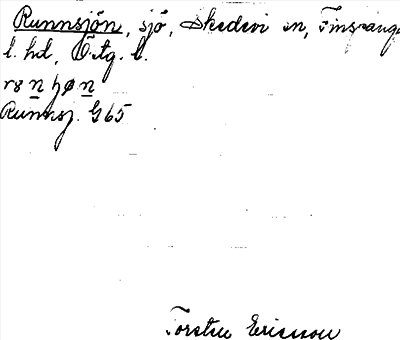 Runnsjön, sjö, Skedevi sn, Finspånga
l. hd, Östg. l.
Runnsj. G 65
Torsten Ericsson